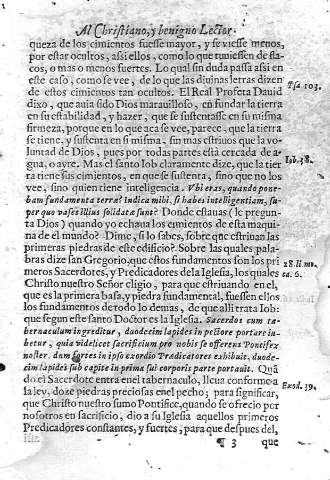 Al Christiano, y benigno Lector.
queza de los cimientos fuesse mayor, y se viesse menos,
por estar ocultos, assi ellos, como lo que tuuiessen de fla-
cos, o mas o menos fuertes. Lo qual sin duda passa assi en
este caso, como se vee, de lo que las diuinas letras dizen
de estos cimientos tan ocultos. El Real Profeta Dauid
Psa 103.
dixo, que auia sido Dios marauilloso, en fundar la tierra
en su estabilidad, y hazer, que se sustentasse en su misma
firmeza, porque en lo que aca se vee, parece, que la tierra
se tiene, y sustenta en si misma, sin mas estriuos que la vo-
luntad de Dios, pues por todas partes està cercada de a-
gua, o ayre. Mas el santo Iob claramente dize, que la tier
Iob. 38.
ra tiene sus cimientos, en que se sustenta, sino que no los
vee, sino quien tiene inteligencia. Vbi eras, quando pone-
bam fundamenta terræ? Indica mihi, si habes intelligentiam, su-
per quo vases illius solidatæ sunt? Donde estauas (le pregun-
ta Dios) quando yo echaua los cimientos de esta maqui-
ta de el mundo? Dime, si lo sabes, sobre que estriuan las
primeras piedras de este edificio? Sobre las quales pala-
bras dize san Gregorio, que estos fundamentos son los pri
28. li. mo.
meros Sacerdotes, y Predicadores de la Iglesia, los quales
ca. 6.
Christo nuestro Señor eligio, para que estriuando en el,
que es la primera basa, y piedra fundamental, fuessen ellos
los fundamentos de todo lo demas, de que alli trata Iob:
que segun este santo Doctor es la Iglesia. Sacerdos cum ta-
bernaculum ingreditur, duodecim lapides in pectore portare iu-
betur, quia videlicet sacrificium pro nobis se offerens Pontifex
noster, dum fortes in ipso exordio Prædicatores exhibuit, duode-
cim lapides sub capite in prima sui corporis parte portauit. Quã
do el Sacerdote entra en el tabernaculo, lleua conforme a
Exod. 39.
la ley, doze piedras preciosas en el pecho; para significar,
que Christo nuestro sumo Pontifice, quando se ofrecio por
nosotros en sacrificio, dio a su Iglesia aquellos primeros
Predicadores constantes, y fuertes, para que despues del,
¶ 3 que